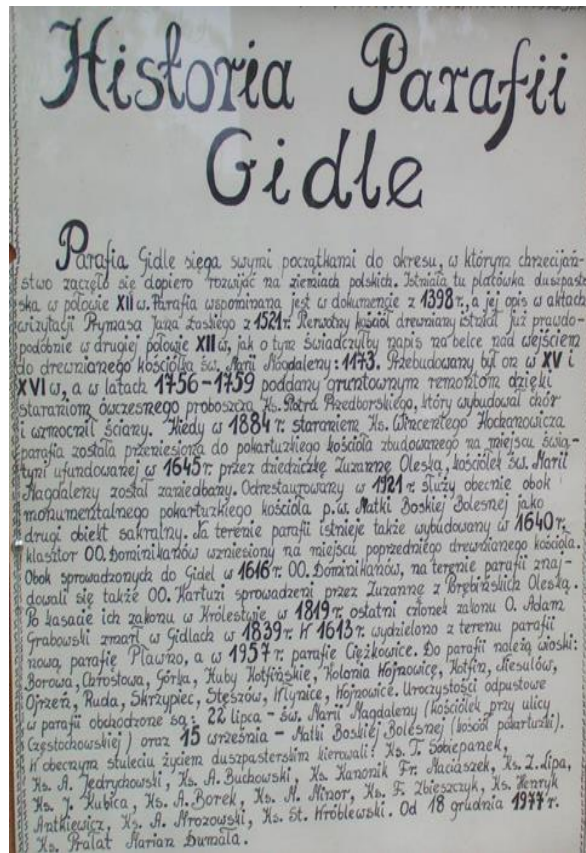 Historia Parafii
Gidle
Parafia Gidle sięga swymi początkami do okresu, w którym chrzecijań-
stwo zaczęło się dopiero rozwijać na ziemiach polskich. Istniała tu placówka duszpaste
ska w połowie XII w. Parafia wspominana jest w dokumencie z 1398 r., a jej opis w aktach
wizytacji Prymasa Jana Łaskiego z 1521 r. Pierwotny kościół drewniany istniał już prawdo-
podobnie w drugiej połowie XII w, jak o tym świadczyłby napis na belce nad wejściem
do drewnianego kościółka św. Marii Magdaleny: 1173. Przebudowany był on w XV i
XVI w, a w latach 1756-1759 poddany gruntownym remontom dzięki
staraniom ówczesnego proboszcza Ks. Piotra Przedborskiego, który wybudował chór
i wzmocnił ściany. Kiedy w 1884 r. staraniem Ks. Wincentego Kochanowicza
parafia została przeniesiona do pokartuzkiego kościoła zbudowanego na miejscu świą-
tyni ufundowanej w 1645 r. przez dziedziczkę Zuzannę Oleską, kościółek św. Marii
Magdaleny został zaniedbany. Odrestaurowany w 1921 r. służy obecnie obok
monumentalnego pokartuzkiego kościoła p.w. Matki Boskiej Bolesnej jako
drugi obiekt sakralny. Na terenie parafii istnieje także wybudowany w 1640 r.
klasztor OO. Dominikanów wzniesiony na miejscu poprzedniego drewnianego kościoła.
Obok sprowadzonych do Gidel w 1616 r. OO. Dominikanów, na terenie parafii znaj-
dowali się także OO. Kartuzi sprowadzeni przez Zuzannę z Przerębskich Oleską.
Po kasacie ich zakonu w Królestwie w 1819 r. ostatni członek zakonu O. Adam
Grabowski zmarł w Gidlach w 1839 r. W 1613 r. wydzielono z terenu parafii
nową parafię Pławno, a w 1957 r. parafię Ciężkowice. Do parafii należą wioski:
Borowa, Chrostowa, Górka, Huby Kotfińskie, Kolonia Wojnowice, Kotfin, Niesulów,
Ojrzeń, Ruda, Skrzypiec, Stęszów, Włynice, Wojnowice. Uroczystości odpustowe
w parafii obchodzone są: 22 lipca - św. Marii Magdaleny (kościółek przy ulicy
Częstochowskiej) oraz 15 września - Matki Boskiej Bolesnej (kościół pokartuzki).
W obecnym stuleciu życiem duszpasterskim kierowali: Ks. T. Sobiepanek,
Ks. A. Jędrychowski, Ks. A. Buchowski, Ks. Kanonik Fr. Maciaszek, Ks. Z. Lipa,
Ks. J. Kubica, Ks. A. Borek, Ks. M. Minor, Ks. F. Zbieszczyk, Ks. Henryk
Antkiewicz, Ks. A. Mrozowski, Ks. St. Wróblewski. Od 18 grudnia 1977 r.
Ks. Prałat Marian Dumała.